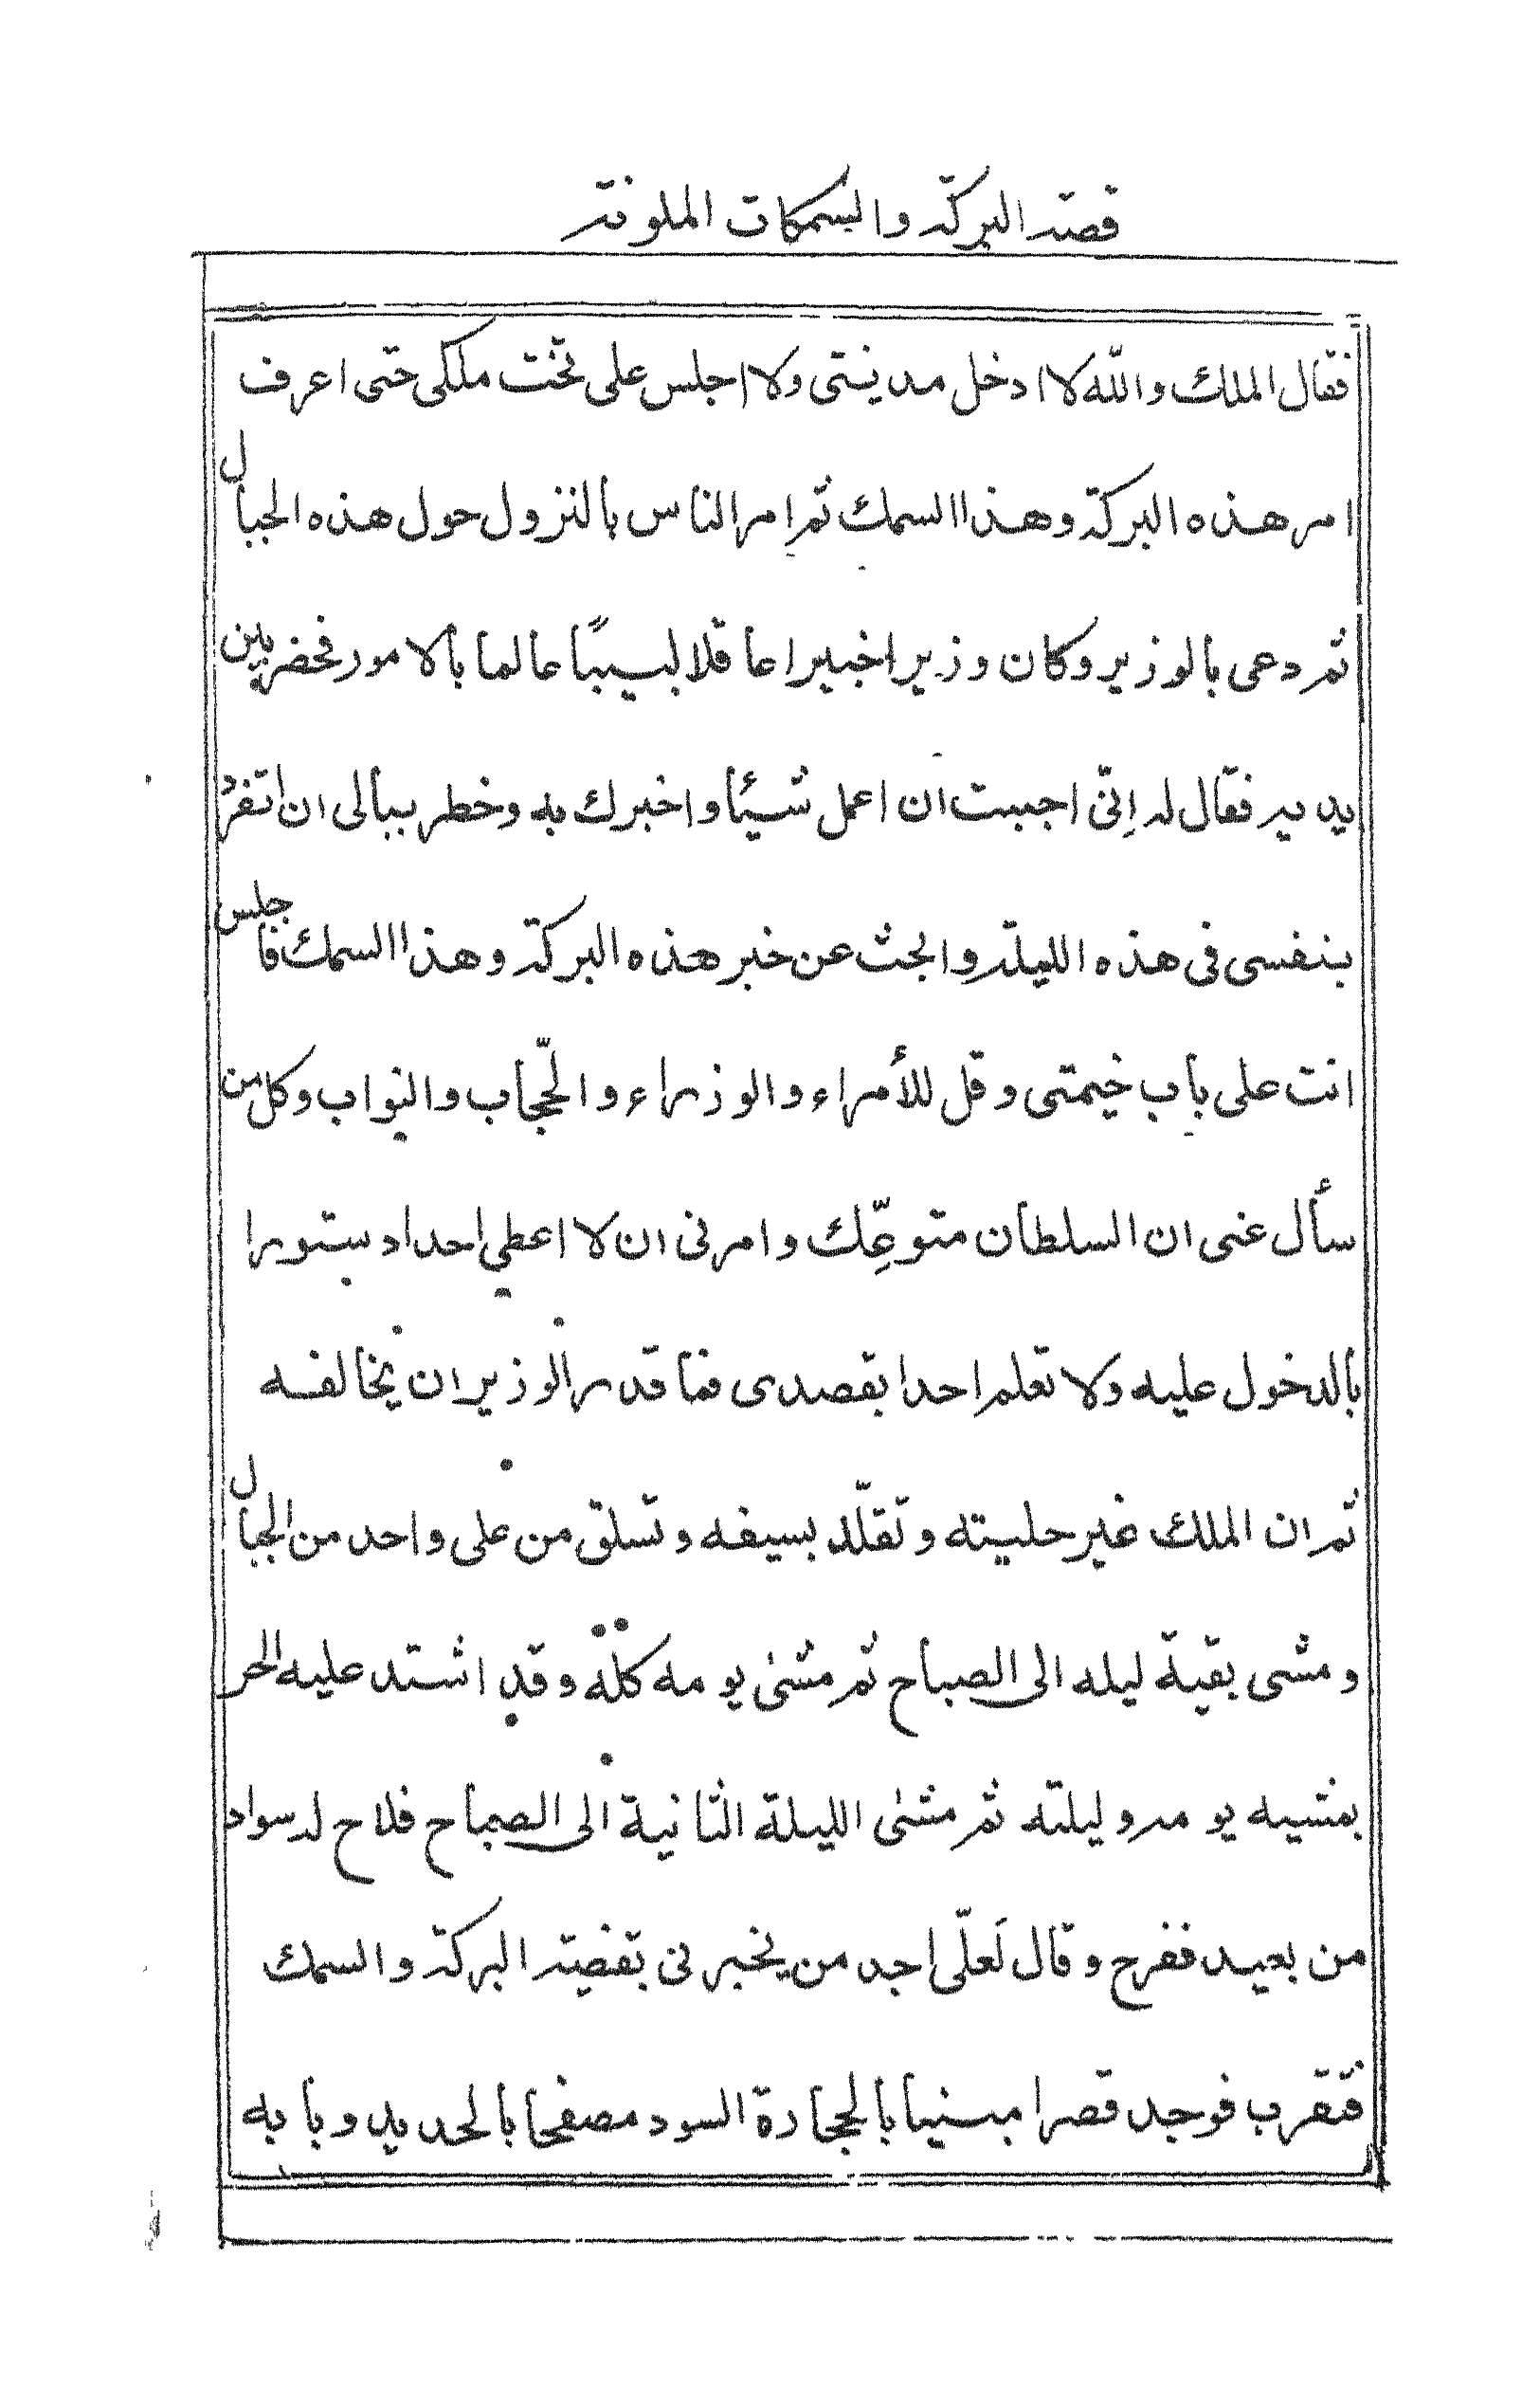 قصة البركة والسمكات الملونة
فقال الملك والله لا ادخل مدينتى ولا اجلس على تخت ملكى حتى اعرف
امر هذه البركة وهذا السمك ثم امر الناس بالنزول حول هذه الجبال
ثم دعى بالوزير وكان وزيرا خبيرا عاقلا لبيبًا عالما بالامور فحضر بين
يديه فقال له إنّى احببت ان اعمل شيئا واخبرك به وخطر ببالى ان اتفرد
بنفسى فى هذه الليلة وابحث عن خبر هذه البركة وهذا السمك فاجلس
انت على باب خيمتى وقل للأمراء والوزراء والحّجاب والنواب وكل من
سأل عنى ان السلطان متوعّك وامرنى ان لا اعطي احدا دستورا
بالدخول عليه ولا تعلم احدا بقصدى فما قدر الوزير ان يخالفه
ثم ان الملك غير حليته وتقلّد بسيفه وتسلق من على واحد من الجبال
ومشى بقية ليله الى الصباح ثم مشى يومه كله وقد اشتد عليه الحر
بمشيه يومه وليلته ثم مشى الليلة الثانية الى الصباح فلاح له سواد
من بعيد ففرح وقال لَعلّى اجد من يخبرنى بقضية البركة والسمك
فتقرب فوجد قصرا مبنيا بالحجارة السود مصفحا بالحديد وبابه